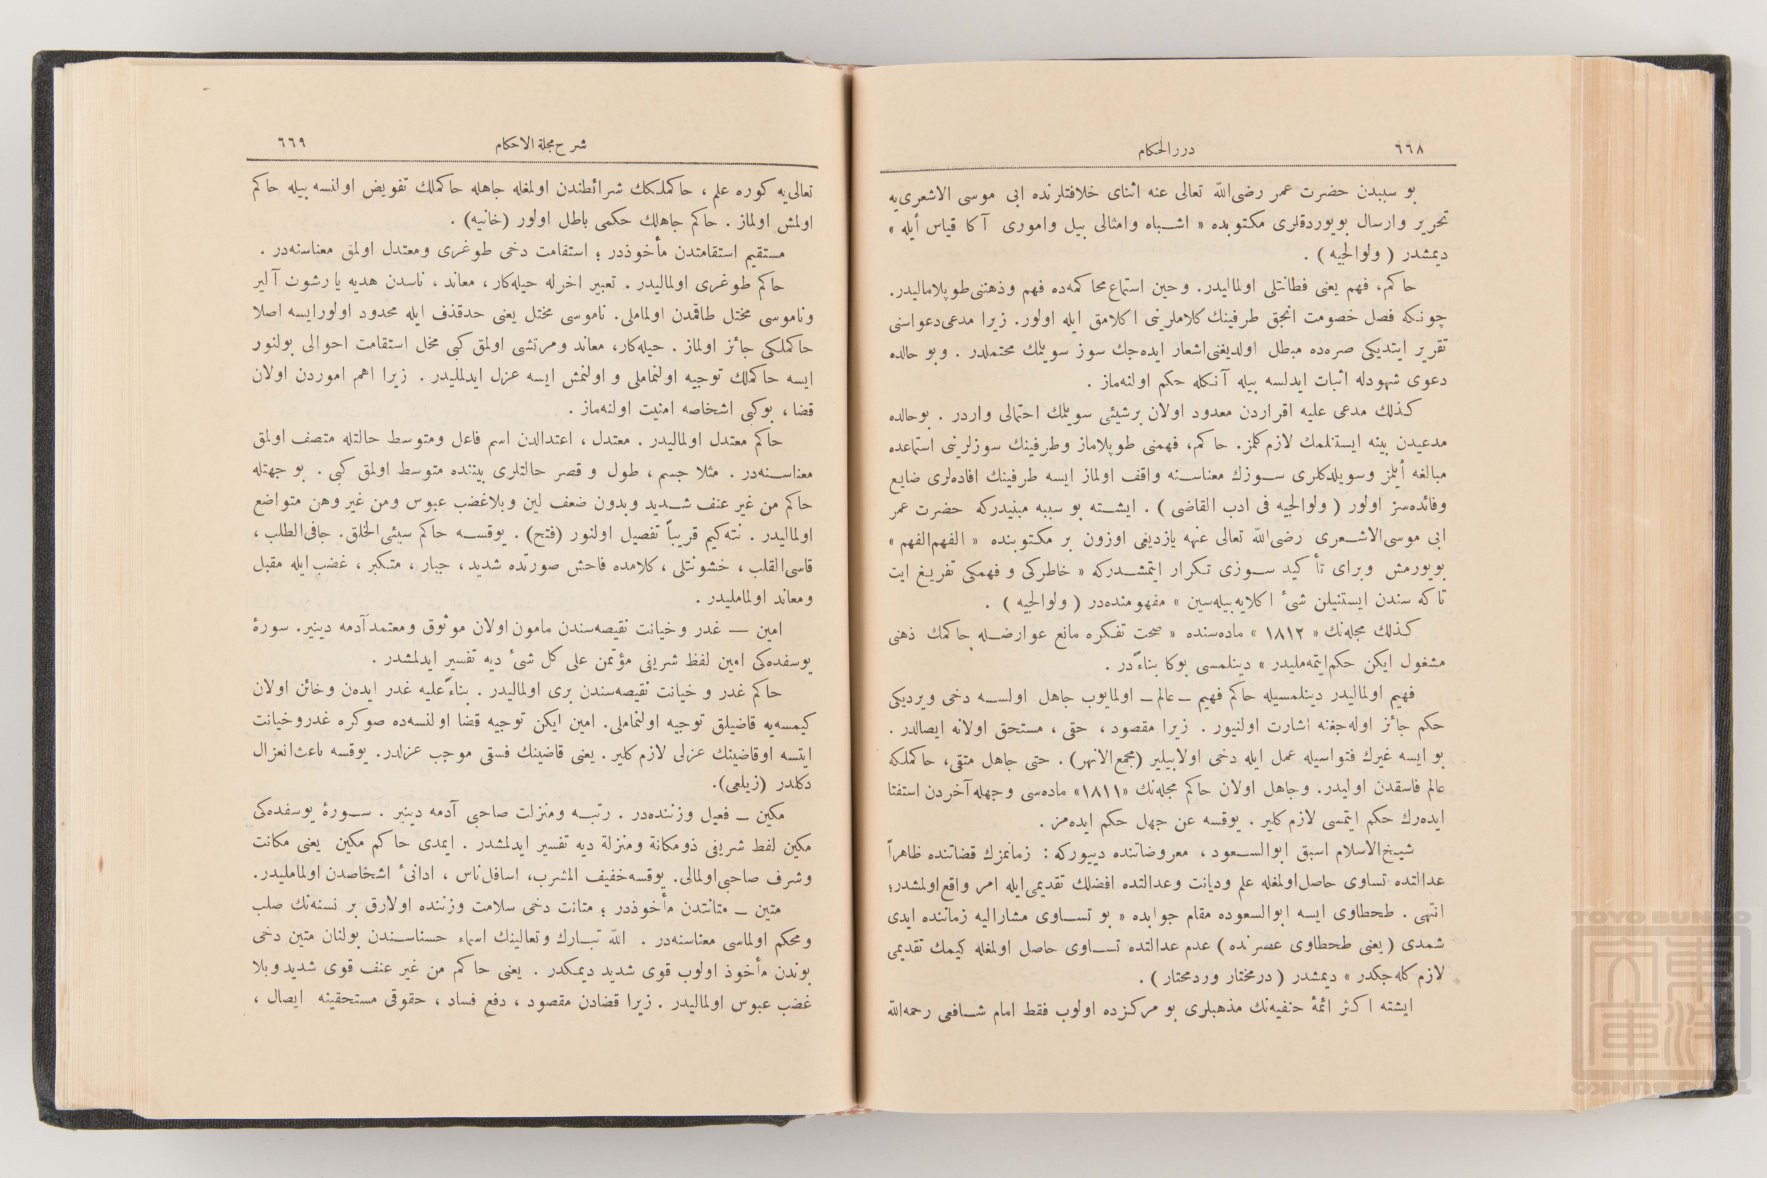 ٦٦٨
درر الحكام
بو سببدن حضرت عمر رضى‌الله تعالى عنه اثناى خلافتلرنده ابى موسى الاشعرى‌يه
تحرير وارسال بويوردقلرى مكتوبده « اشباه وامثالى بيل وامورى آكا قياس أيله »
ديمشدر ( ولوالجيه ) .
حاكم، فهم يعنى فطانتلى اولماليدر. وحين استماع محاكمه‌ده فهم وذهنى طوپلاماليدر.
چونكه فصل خصومت انجق طرفينك كلاملرنى اكلامق ايله اولور. زيرا مدعى دعواسنى
تقرير ايتديكى صره‌ده مبطل اولديغنى اشعار ايده‌جك سوز سويلمك محتملدر . وبو حالده
دعوى شهودله اثبات ايدلسه بيله آنكله حكم اولنه‌ماز .
كذلك مدعى عليه اقراردن معدود اولان برشيئى سويلمك احتمالى واردر . بوحالده
مدعيدن بينه ايستنلمك لازم كلمز. حاكم، فهمنى طوپلاماز وطرفينك سوزلرنى استماعده
مبالغه أيلمز وسويلدكلرى سوزك معناسنه واقف اولماز ايسه طرفينك افاده‌لرى ضايع
وفائده‌سز اولور ( ولوالجيه فى ادب القاضى ) . ايشته بو سببه مبنيدركه حضرت عمر
ابى موسى‌الاشعرى رضى‌الله تعالى عنهه يازديغى اوزون بر مكتوبنده « الفهم‌الفهم »
بويورمش وبراى تأكيد سوزى تكرار ايتمشدركه « خاطركى و فهمكى تفريغ ايت
تاكه سندن ايستنيلن شىء اكلايه‌بيله‌سين » مفهومنده‌در ( ولوالجيه ) .
كذلك مجله‌نك « ١٨١٢ » ماده‌سنده « صحت تفكره مانع عوارضله حاكمك ذهنى
مشغول ايكن حكم ايتمه‌مليدر » دينلمسى بوكا بناءً در .
فهيم اولماليدر دينلمسيله حاكم فهيم ــ عالم ــ اولمايوب جاهل اولسه دخى ويرديكى
حكم جائز اوله‌جغنه اشارت اولنيور . زيرا مقصود ، حقى ، مستحق اولانه ايصالدر .
بو ايسه غيرك فتواسيله عمل ايله دخى اولابيلير (مجمع‌الانهر) . حتى جاهل متقى، حاكملكه
عالم فاسقدن اوليدر. وجاهل اولان حاكم مجله‌نك «١٨١١» ماده‌سى وجهله آخردن استفتا
ايده‌رك حكم ايتمسى لازم كلير . يوقسه عن جهل حكم ايده‌مز .
شيخ‌الاسلام اسبق ابوالسعود ، معروضاتنده دييوركه : زمانمزك قضاتنده ظاهراً
عدالتده تساوى حاصل‌اولمغله علم وديانت وعدالتده افضلك تقديمى‌ايله امر واقع‌اولمشدر؛
انتهى . طحطاوى ايسه ابوالسعوده مقام جوابده « بو تساوى مشاراليه زماننده ايدى
شمدى ( يعنى طحطاوى عصرنده ) عدم عدالتده تساوى حاصل اولمغله كيمك تقديمى
لازم كله‌جكدر » ديمشدر ( درمختار وردمحتار ) .
ايشته اكثر ائمۀ حنفيه‌نك مذهبلرى بو مركزده اولوب فقط امام شافعى رحمه‌الله
شرح مجلة الاحكام
٦٦٩
تعالى‌يه كوره علم ، حاكملكك شرائطندن اولمغله جاهله حاكملك تفويض اولنسه بيله حاكم
اولمش اولماز . حاكم جاهلك حكمى باطل اولور (خانيه) .
مستقيم استقامتدن مأخوذدر ؛ استقامت دخى طوغرى ومعتدل اولمق معناسنه‌در .
حاكم طوغرى اولماليدر . تعبير اخرله حيله‌كار ، معاند ، ناسدن هديه يا رشوت آلير
وناموسى مختل طاقمدن اولماملى. ناموسى مختل يعنى حدقذف ايله محدود اولورايسه اصلا
حاكملكى جائز اولماز . حيله‌كار، معاند ومرتشى اولمق كبى مخل استقامت احوالى بولنور
ايسه حاكملك توجيه اولنماملى و اولنمش ايسه عزل ايدلمليدر . زيرا اهم اموردن اولان
قضا ، بوكبى اشخاصه امنيت اولنه‌ماز .
حاكم معتدل اولماليدر . معتدل ، اعتدالدن اسم فاعل ومتوسط حالتله متصف اولمق
معناسنه‌در . مثلا جسم ، طول و قصر حالتلرى بيننده متوسط اولمق كبى . بو جهتله
حاكم من غير عنف شديد وبدون ضعف لين وبلاغضب عبوس ومن غير وهن متواضع
اولماليدر . نته‌كيم قريباً تفصيل اولنور (فتح) . يوقسه حاكم سيئى‌الخلق. جافى‌الطلب ،
قاسى‌القلب ، خشونتلى ، كلامده فاحش صورتده شديد ، جبار ، متكبر ، غضب ايله مقبل
ومعاند اولمامليدر .
امين — غدر وخيانت نقيصه‌سندن مامون اولان موثوق ومعتمد آدمه دينير. سورۀ
يوسفده‌كى امين لفظ شريفى مؤتمن على كل شىء ديه تفسير ايدلمشدر .
حاكم غدر و خيانت نقيصه‌سندن برى اولماليدر . بناءً عليه غدر ايدن وخائن اولان
كيمسه‌يه قاضيلق توجيه اولنماملى. امين ايكن توجيه قضا اولنسه‌ده صوكره غدروخيانت
ايتسه اوقاضينك عزلى لازم كلير . يعنى قاضينك فسقى موجب عزلدر. يوقسه باعث‌انعزال
دكلدر (زيلعى).
مكين ــ فعيل وزننده‌در . رتبه ومنزلت صاحبى آدمه دينير . سورۀ يوسفده‌كى
مكين لفظ شريفى ذومكانة ومنزلة ديه تفسير ايدلمشدر . ايمدى حاكم مكين يعنى مكانت
وشرف صاحبى‌اولمالى. يوقسه خفيف المشرب، اسافل‌ناس ، ادانىء اشخاصدن اولمامليدر.
متين ــ متانتدن مأخوذدر ؛ متانت دخى سلامت وزننده اولارق بر نسنه‌نك صلب
ومحكم اولماسى معناسنه‌در . الله تبارك وتعالينك اسماء حسناسندن بولنان متين دخى
بوندن مأخوذ اولوب قوى شديد ديمكدر . يعنى حاكم من غير عنف قوى شديد وبلا
غضب عبوس اولماليدر . زيرا قضادن مقصود ، دفع فساد ، حقوقى مستحقينه ايصال ،
TOYO BUNKO
東洋文庫
TOYO BUNKO